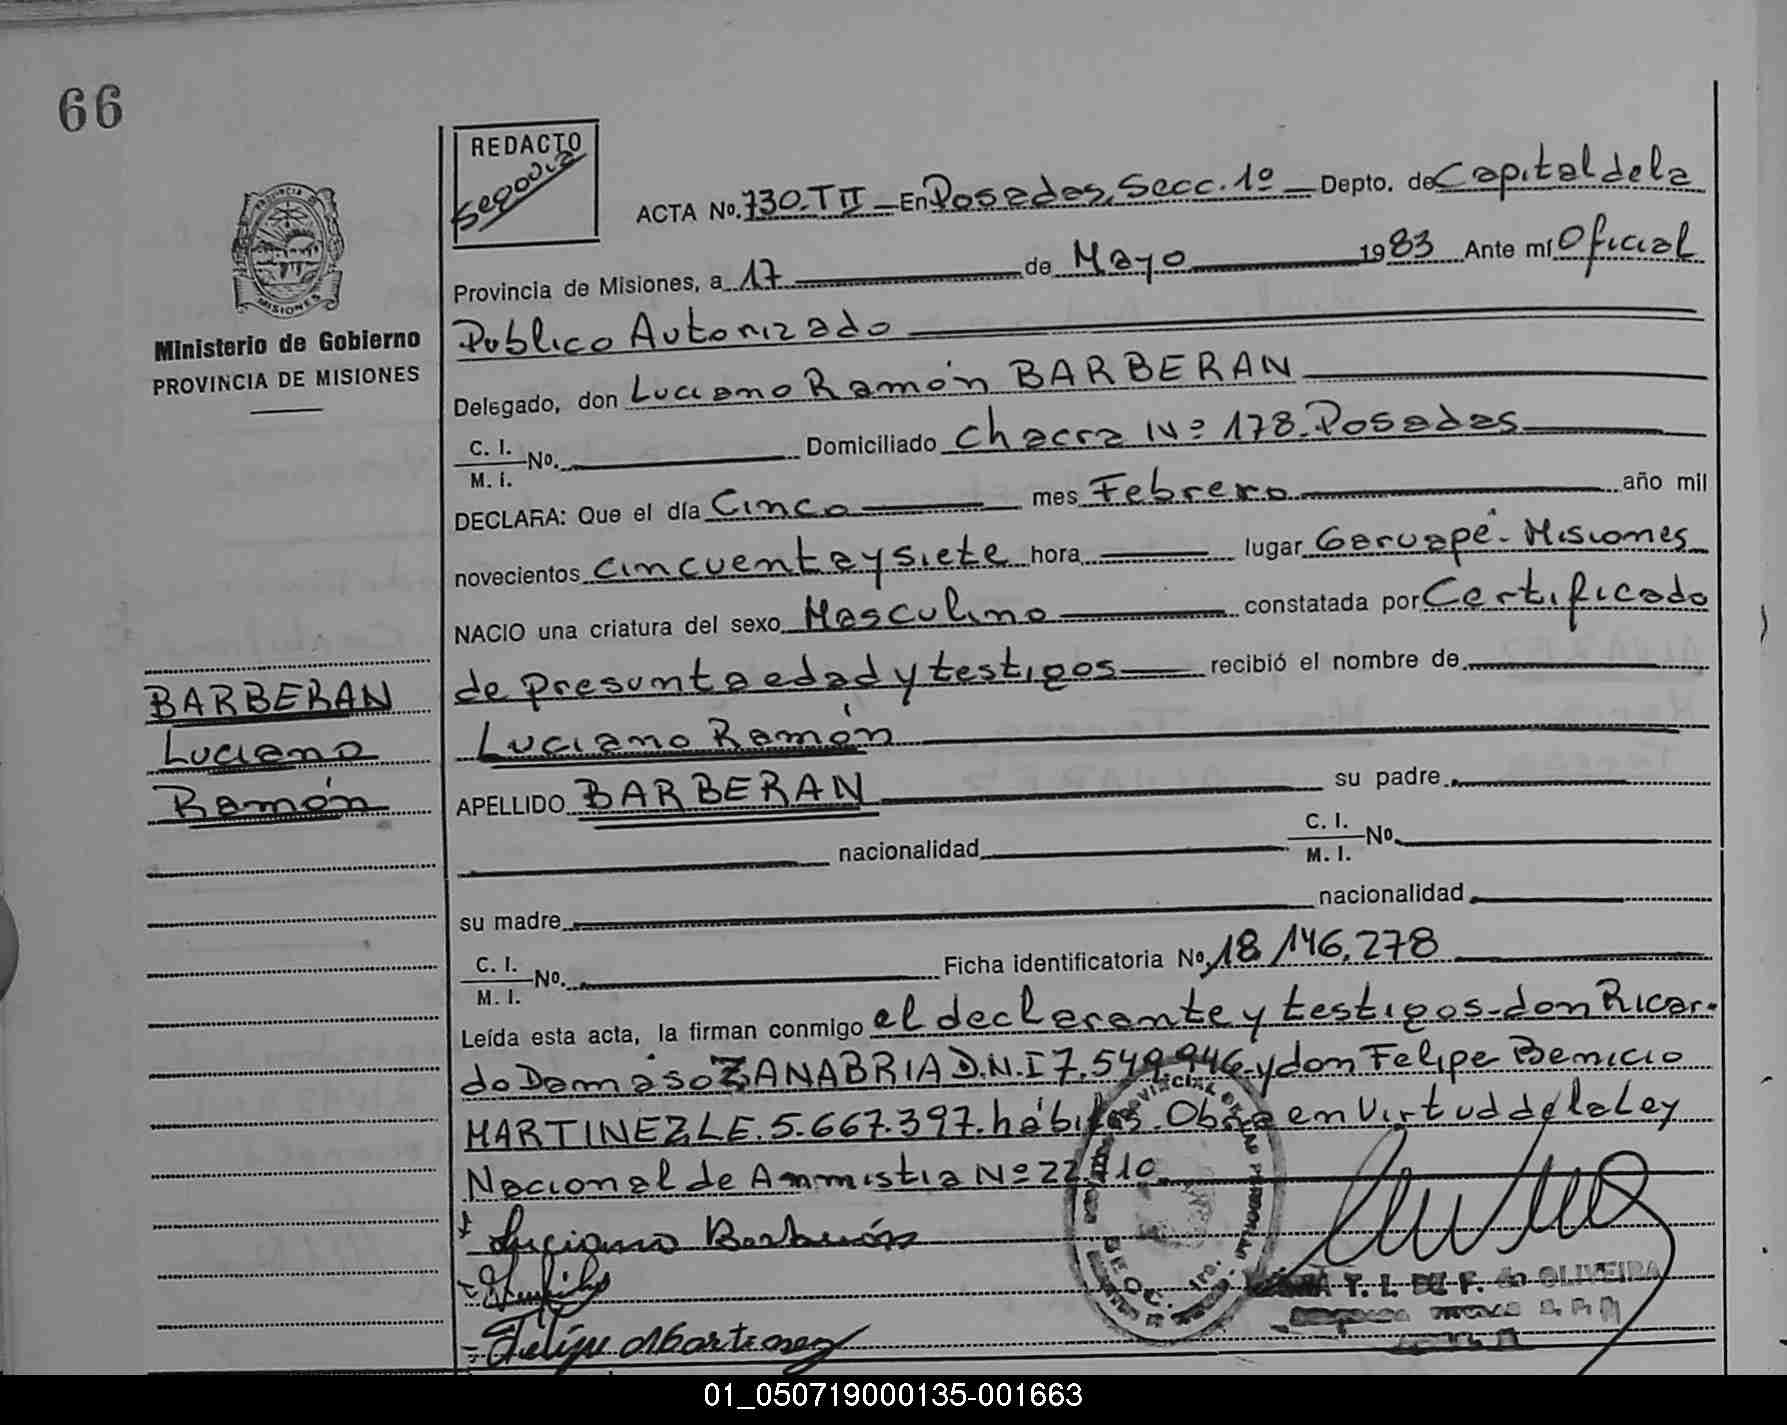 66
REDACTO
Segovia
ACTA No. 730.TII En Posadas, Secc. 1º Depto. de Capital de la
MISIONES
Provincia de Misiones, a 17 de Mayo 1983 Ante mí Oficial
Ministerio de Gobierno
PROVINCIA DE MISIONES
Publico Autorizado
Delegado, don Luciano Ramón BARBERAN
C. I.
M. I. No. Domiciliado Chacra Nº 178. Posadas
DECLARA: Que el día Cinco mes Febrero año mil
novecientos cincuenta y siete hora lugar Garuapé - Misiones
NACIO una criatura del sexo Masculino constatada por Certificado
de presunta edad y testigos recibió el nombre de
BARBERAN
Luciano
Ramón
Luciano Ramón
APELLIDO BARBERAN su padre
nacionalidad C. I.
M. I. No.
su madre nacionalidad
C. I.
M. I. No. Ficha identificatoria No. 18.146.278
Leída esta acta, la firman conmigo el declarante y testigos - don Ricar-
do Damaso ZANABRIA D.N.I 7.549.946 y don Felipe Benicio
MARTINEZ LE. 5.667.397. hábiles. Obra en Virtud de la Ley
Nacional de Ammistia Nº 22
Luciano Barberán
Felipe Martinez
T. L. DE F. de OLIVEIRA
01_050719000135-001663